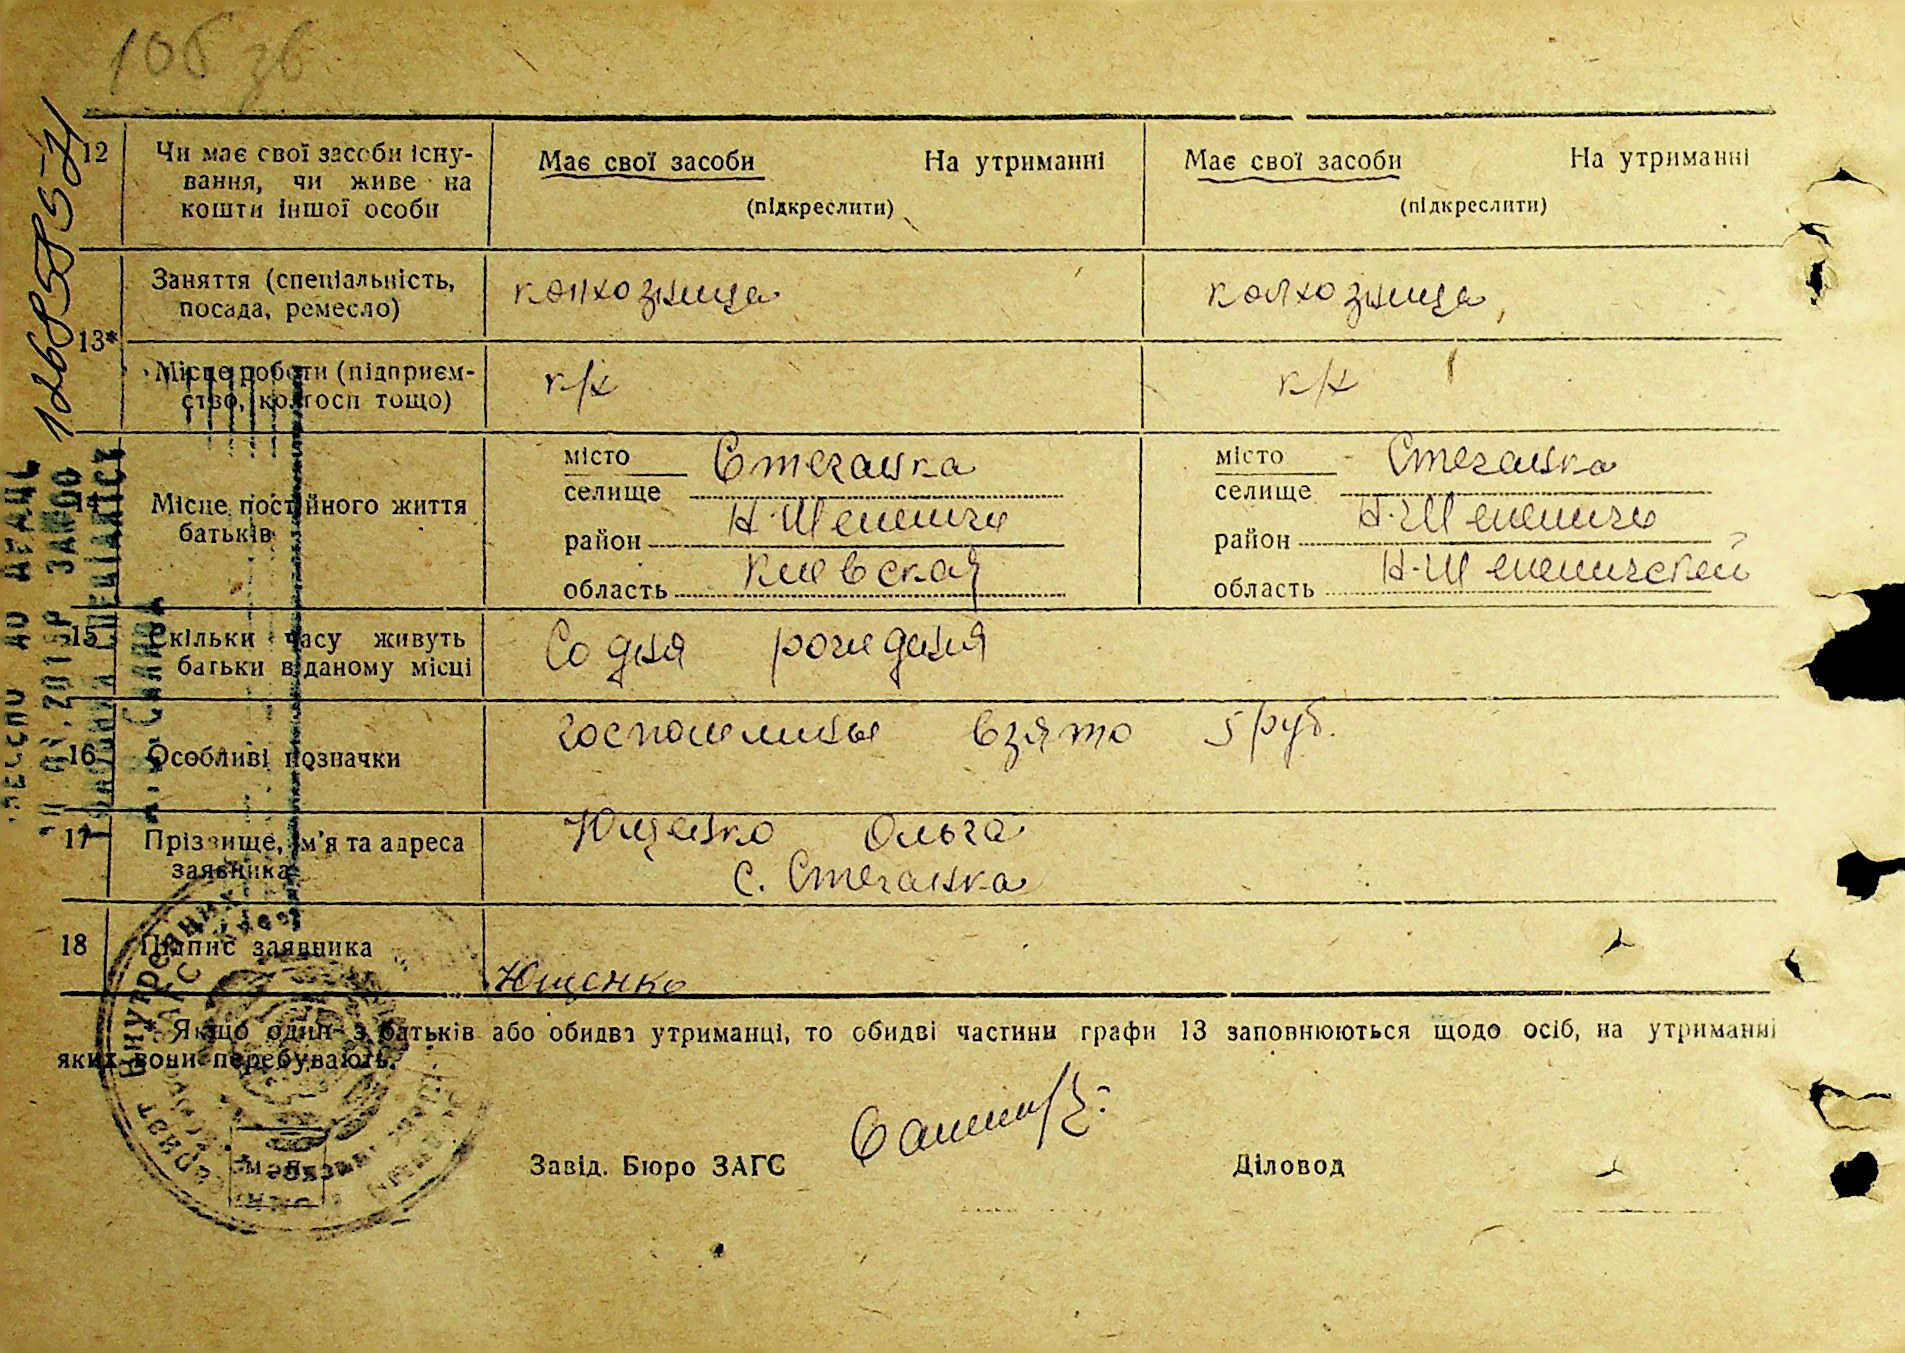 106 зв
12 Чи має свої засоби існу-
вання, чи живе на
кошти іншої особи
Має свої засоби На утриманні
(підкреслити)
Має свої засоби На утриманні
(підкреслити)
13*
Заняття (спеціальність,
посада, ремесло)
колхозница
колхозница
Місце роботи (підприєм-
ство, колгосп тощо)
к/х
к/х
14 Місце постійного життя
батьків
місто
селище Стеганка
район Н.Шепеличи
область Киевская
місто
селище Стеганка
район Н.Шепеличи
область Н-Шепеличской
15 Скільки часу живуть
батьки в даному місці
Со дня рождения
16 Особливі позначки
госпошлины взято 5 руб.
17 Прізвище, ім'я та адреса
заявника
Ющенко Ольга
с. Стеганка
18 Підпис заявника
Ющенко
* Якщо один з батьків або обидва утриманці, то обидві частини графи 13 заповнюються щодо осіб, на утриманні
яких вони перебувають.
Завід. Бюро ЗАГС
Діловод